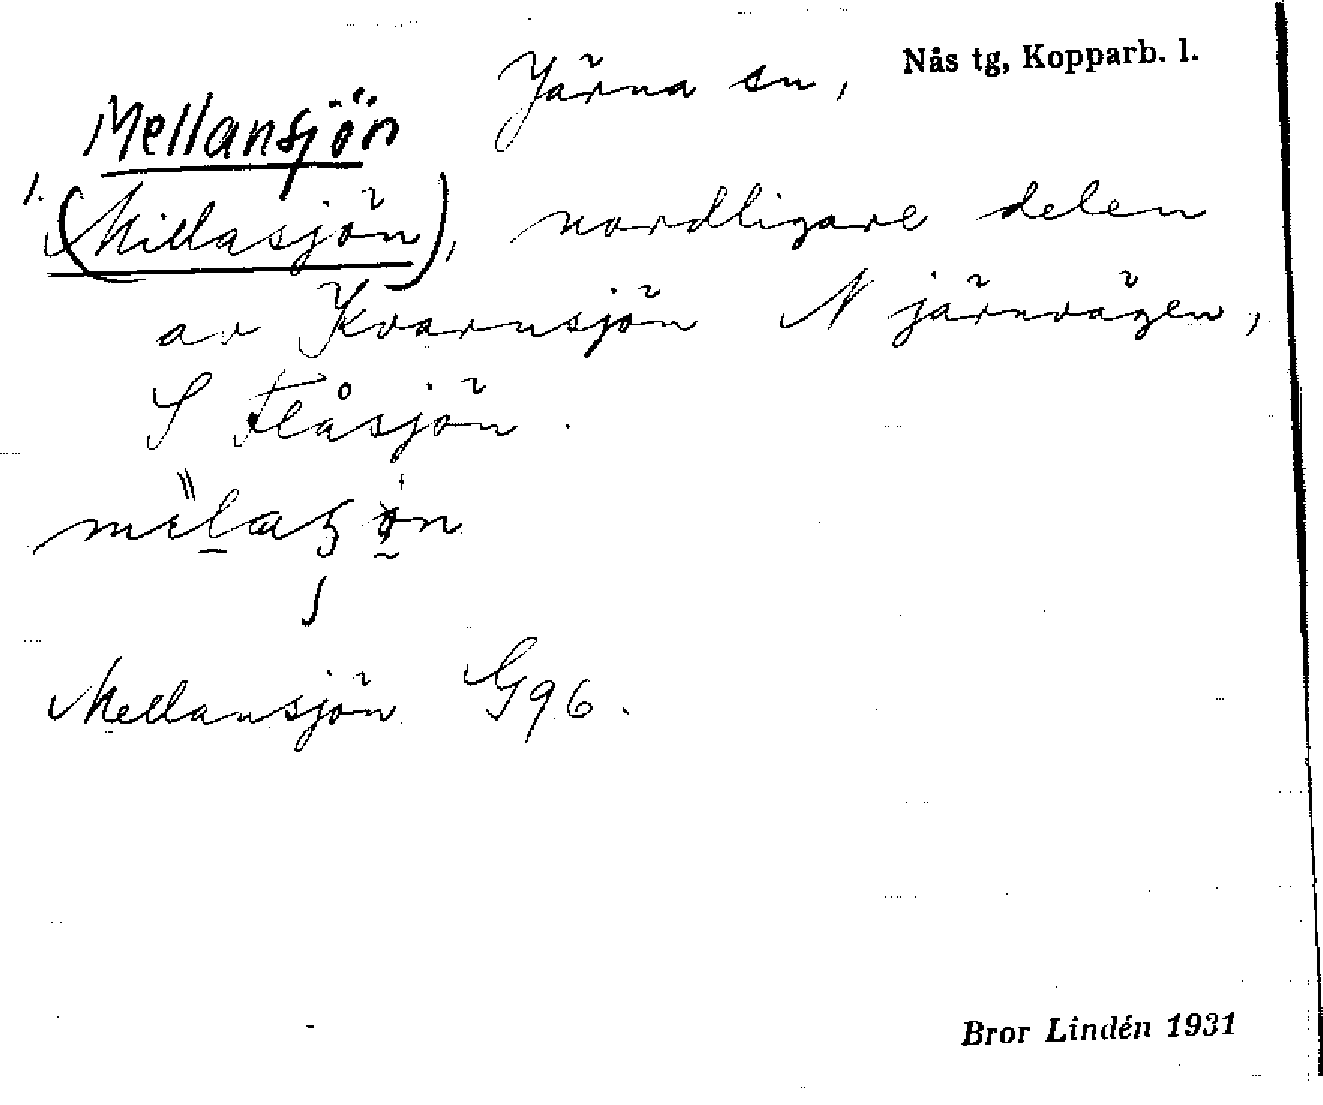 Järna sn, Nås tg, Kopparb. l.
Mellansjön
1. (Millasjön), nordligare delen
av Kvarnsjön N järnvägen,
S Flåsjön.
Mellansjön G96.
Bror Lindén 1931